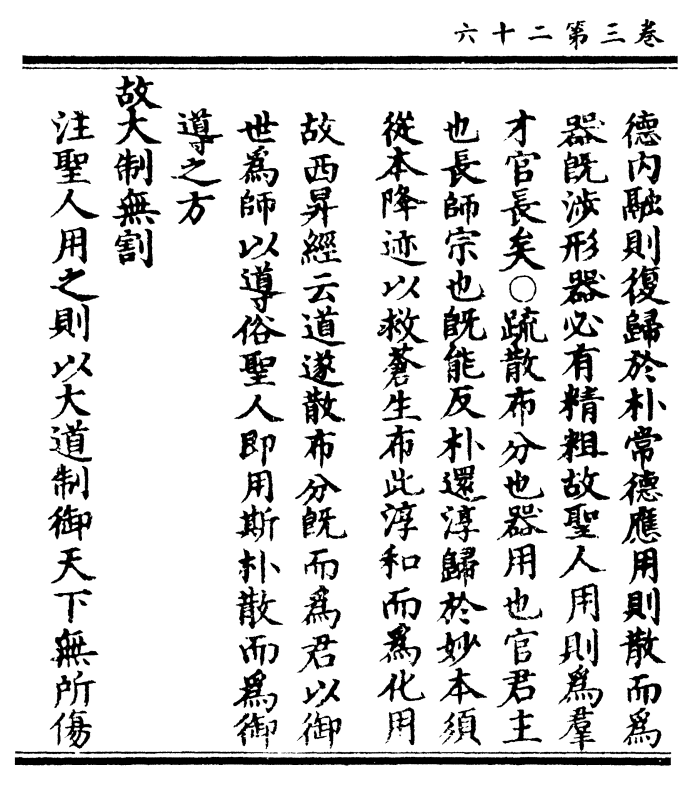 卷三第二十六
德內融則復歸於朴常德應用則散而為
器既涉形器必有精粗故聖人用則為羣
才官長矣○疏散布分也器用也官君主
也長師宗也既能反朴還淳歸於妙本須
從本降迹以救蒼生布此淳和而為化用
故西昇經云道遂散布分既而為君以御
世為師以導俗聖人即用斯朴散而為御
導之方
故大制無割
注聖人用之則以大道制御天下無所傷